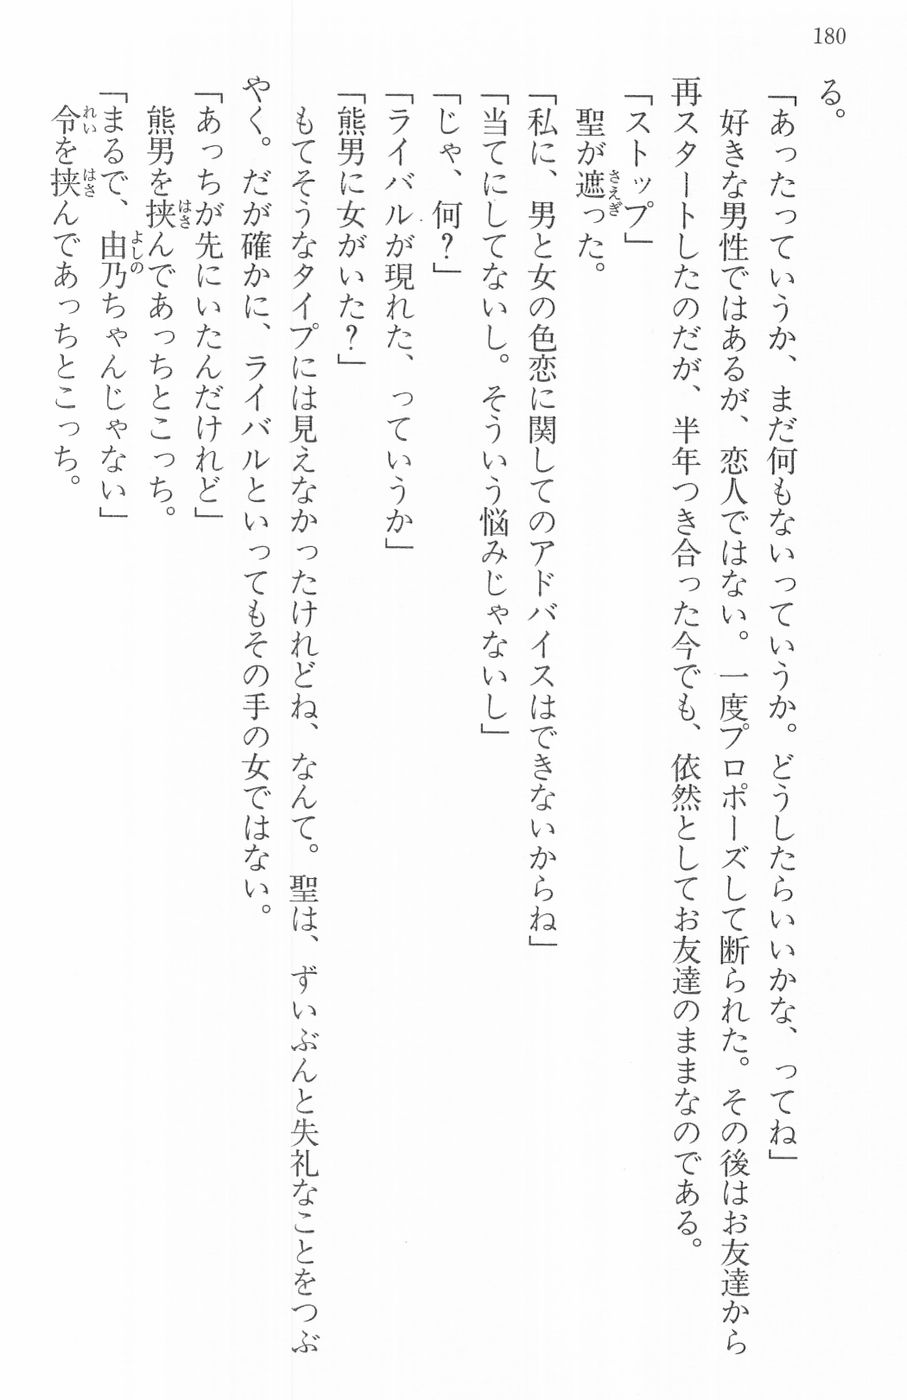 180
る。
「あったっていうか、まだ何もないっていうか。どうしたらいいかな、ってね」
好きな男性ではあるが、恋人ではない。一度プロポーズして断られた。その後はお友達から
再スタートしたのだが、半年つき合った今でも、依然としてお友達のままなのである。
「ストップ」
聖が遮った。
「私に、男と女の色恋に関してのアドバイスはできないからね」
「当てにしてないし。そういう悩みじゃないし」
「じゃ、何？」
「ライバルが現れた、っていうか」
「熊男に女がいた？」
もてそうなタイプには見えなかったけれどね、なんて。聖は、ずいぶんと失礼なことをつぶ
やく。だが確かに、ライバルといってもその手の女ではない。
「あっちが先にいたんだけれど」
熊男を挟んであっちとこっち。
「まるで、由乃ちゃんじゃない」
令を挟んであっちとこっち。